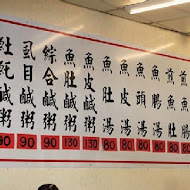 煎魚
煎魚肚
魚腸湯 80
魚頭湯 80
魚皮湯 80
魚肚湯
魚皮鹹粥 130
魚肚鹹粥 130
綜合鹹粥 90
虱目鹹粥 90
鹹粥 90